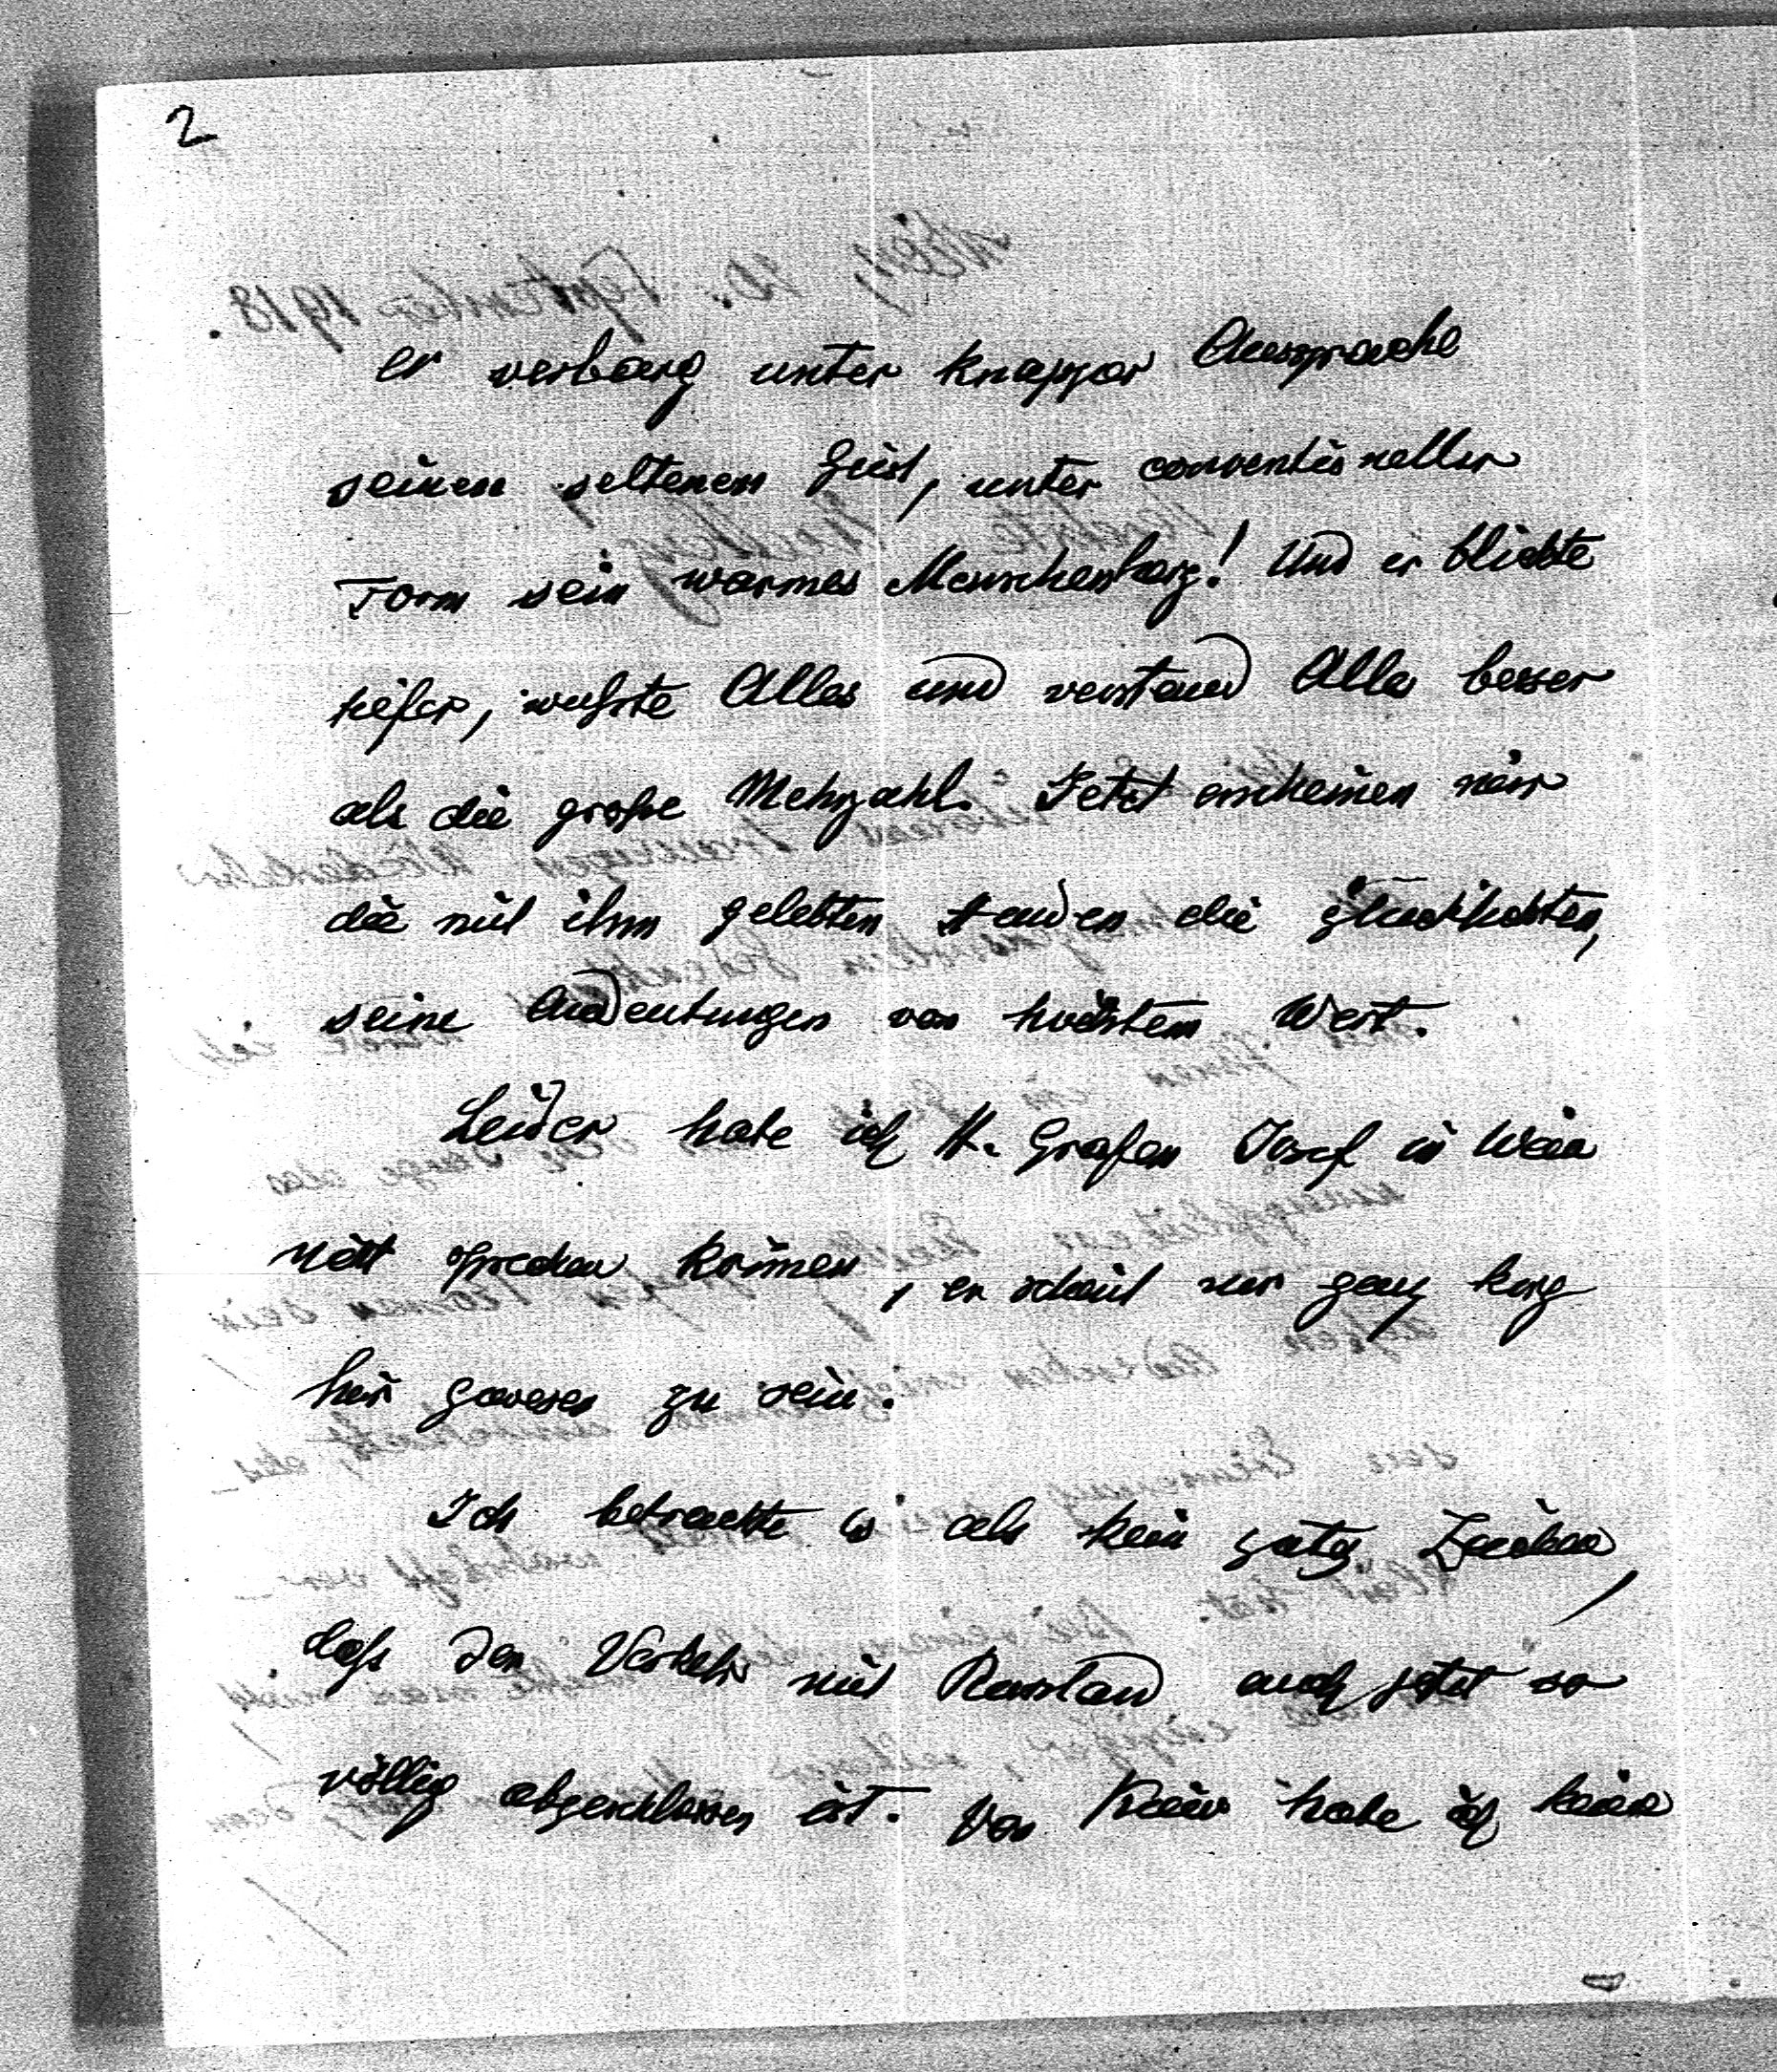 2
er verbarg unter knapper Aussprache
seinen seltenen Geist, unter conventioneller
Form sein warmes Menschenherz! Und er blickte
tiefer, wußte Alles und verstand Alles besser
als die große Mehrzahl. Jetzt erscheinen mir
die mit ihm gelebten Stunden die
seine Andeutungen von höchstem Wert.
Leider habe ich H. Grafen Josef in Wien
nicht sprechen können, er scheint nur ganz kurz
hier gewesen zu sein.
Ich betrachte es als kein gutes Zeichen,
daß der Verkehr mit Russland auch jetzt so
völlig abgeschlossen ist. Von Kiew habe ich keine